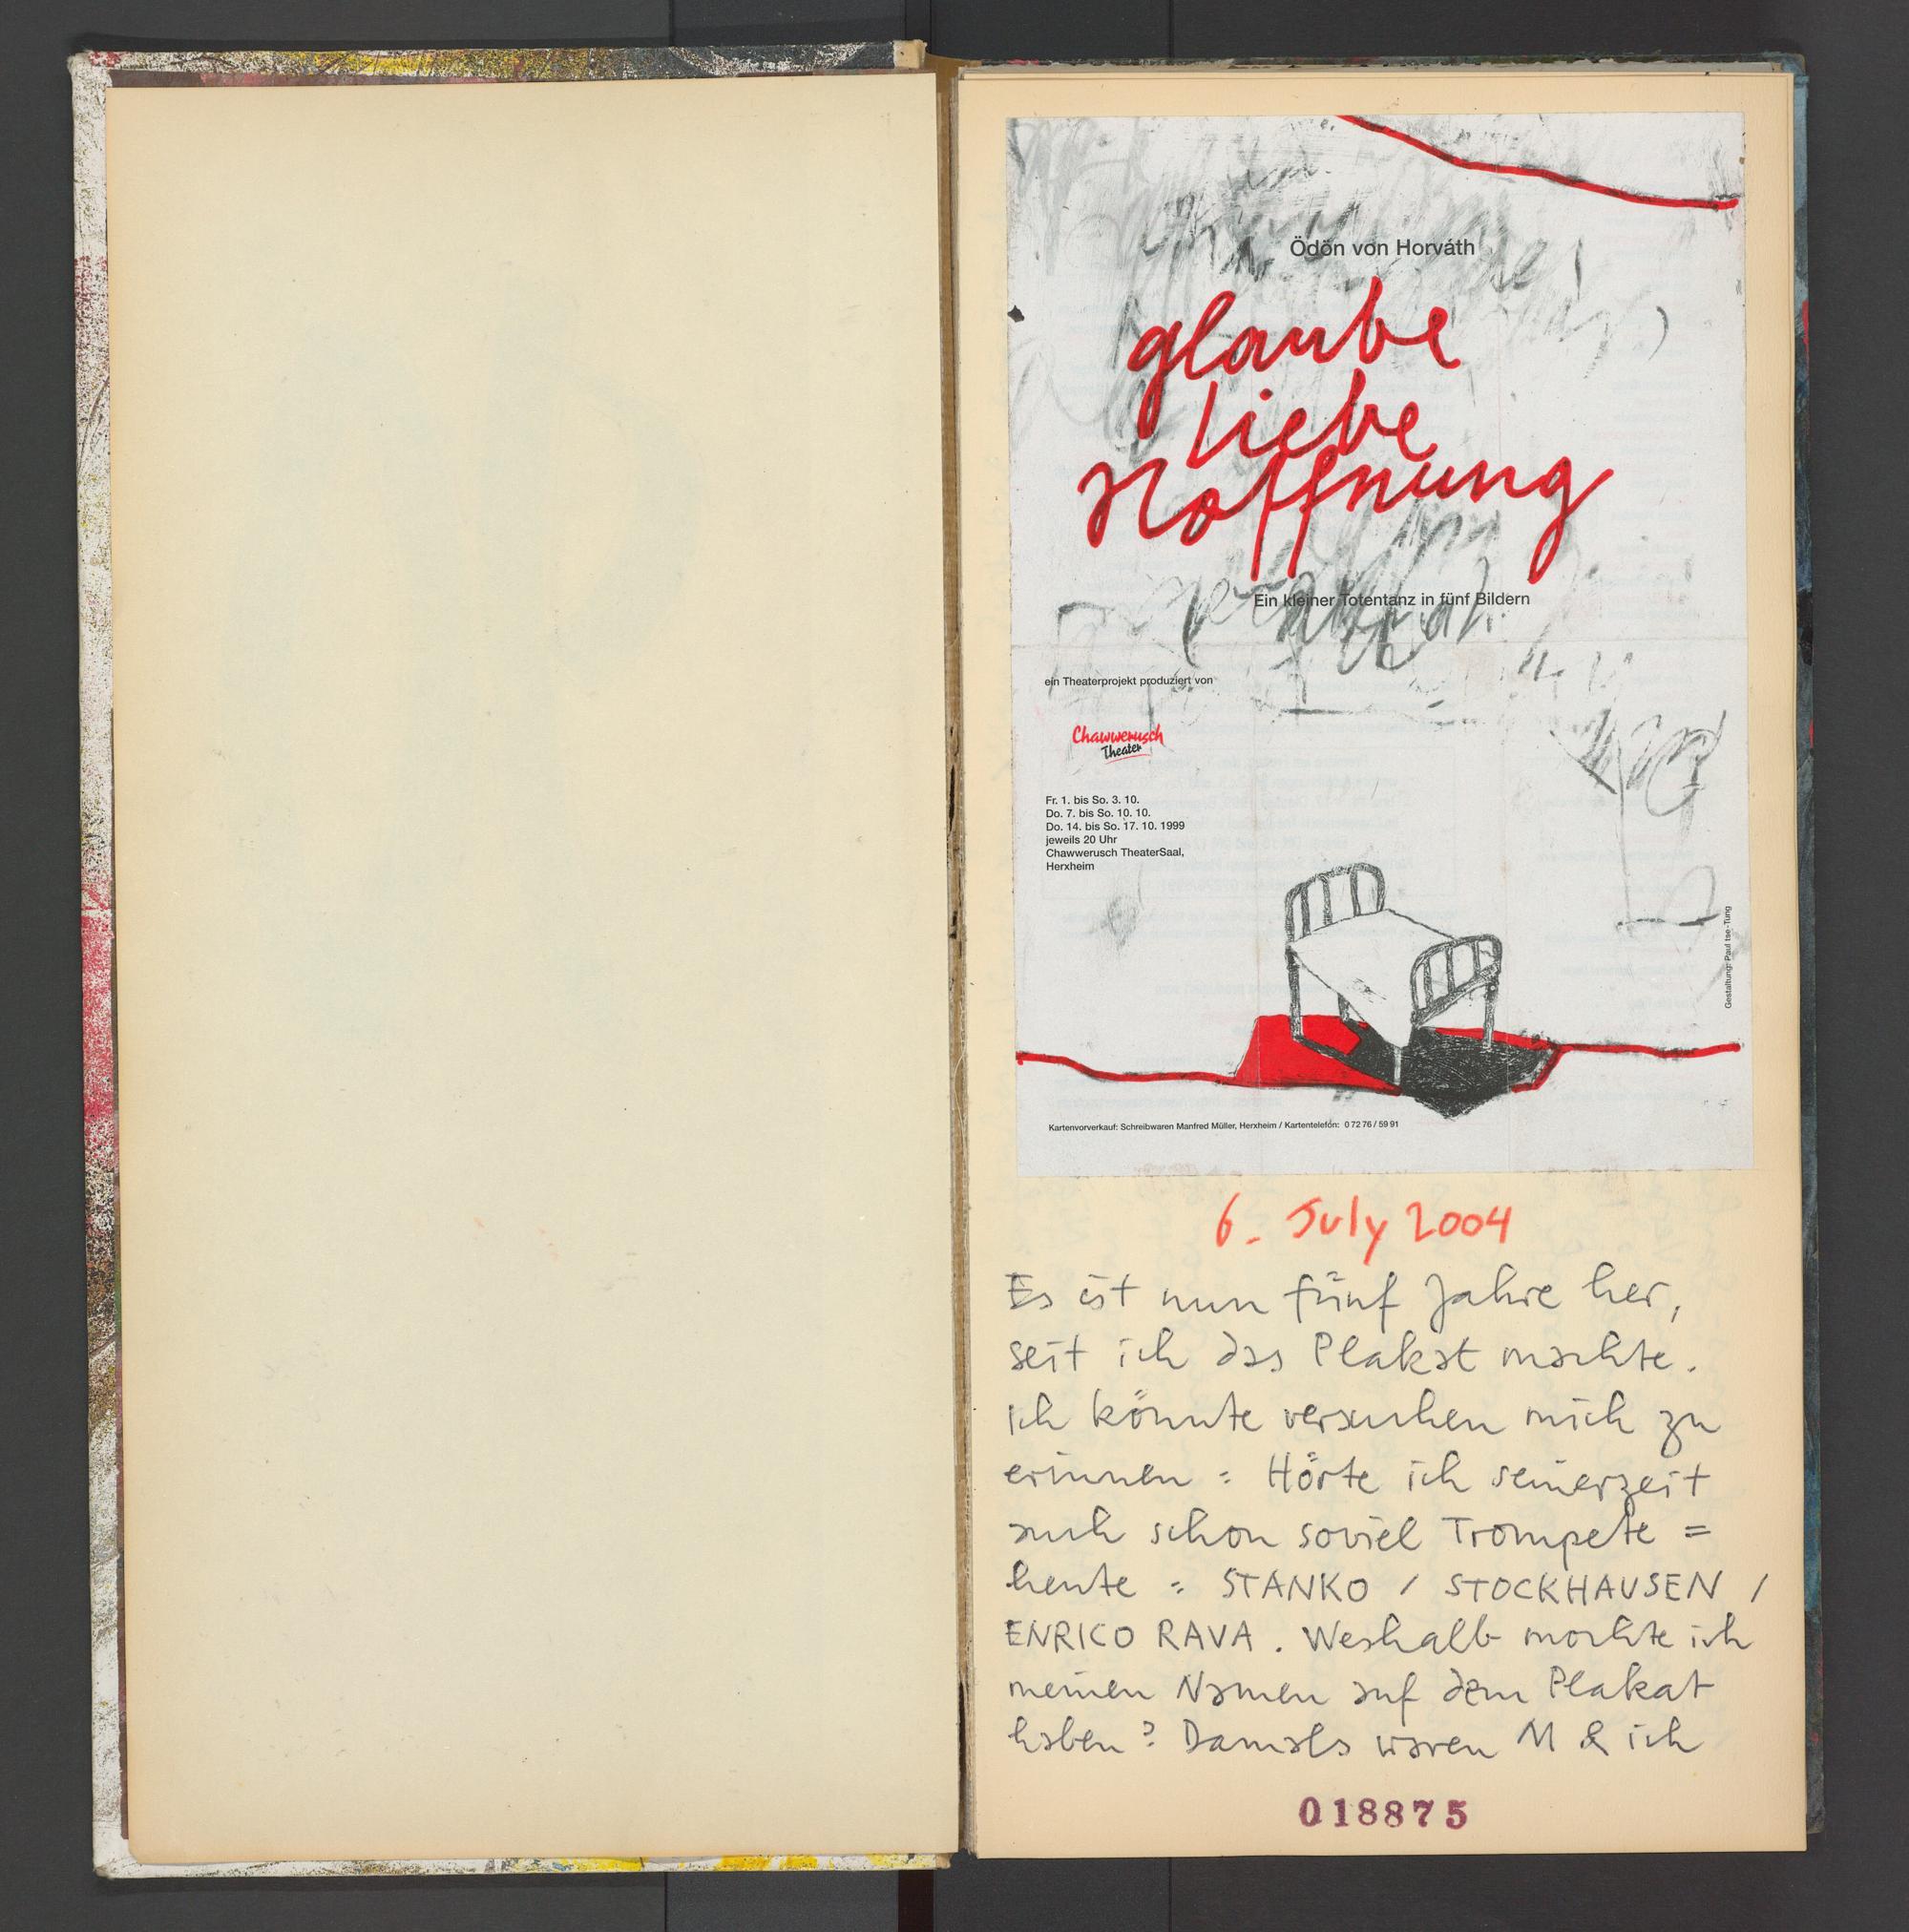 Ödön von Horváth
glaube
liebe
Hoffnung
Ein kleiner Totentanz in fünf Bildern
ein Theaterprojekt produziert von
Chawwerusch
Theater
Fr. 1. bis So. 3. 10.
Do. 7. bis So. 10. 10.
Do. 14. bis So. 17. 10. 1999
jeweils 20 Uhr
Chawwerusch TheaterSaal,
Herxheim
Gestaltung: Paul tse-Tung
Kartenvorverkauf: Schreibwaren Manfred Müller, Herxheim / Kartentelefon: 0 72 76 / 59 91
6. July 2004
Es ist nun fünf Jahre her,
seit ich das Plakat machte.
Ich könnte versuchen mich zu
erinnen : Hörte ich seinerzeit
auch schon soviel Trompete =
heute = STANKO / STOCKHAUSEN /
ENRICO RAVA. Weshalb mochte ich
meinen Namen auf dem Plakat
haben? Damals waren M & ich
018875